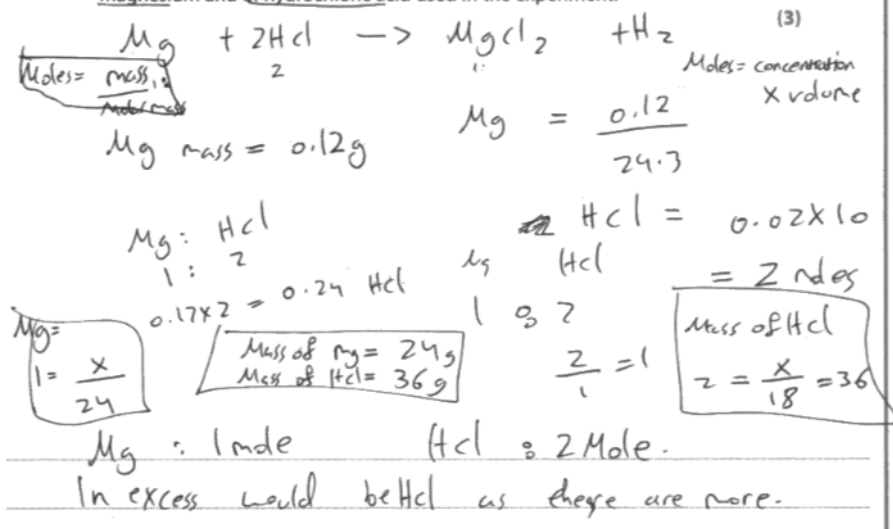 Mg + 2Hcl —> Mgcl2 + H2
(3)
2
1:
Moles= mass
Moles= concentration
X volume
Mg mass = 0.12g
Mg = 0.12
24.3
Mg : Hcl
1 : 2
Hcl = 0.02X10
= 2 moles
0.12x2 = 0.24 Hcl
Mg Hcl
1 : 2
2/1 = 1
Mg=
1 = x/24
Mass of mg = 24g
Mass of Hcl= 36g
Mass of Hcl
2 = x/18 = 36
Mg : 1 mole Hcl : 2 Mole.
In excess would be Hcl as there are more.